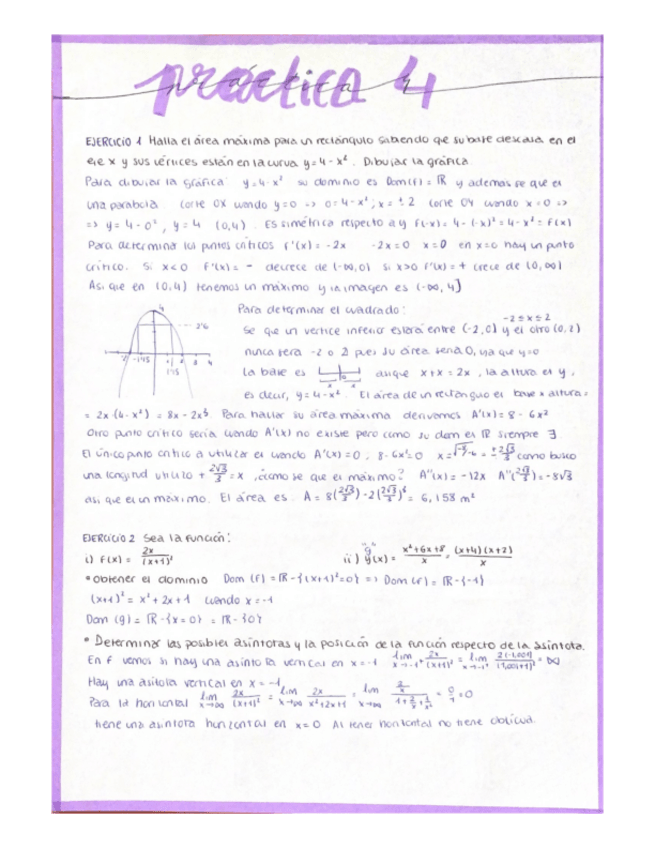 práctica 4
EJERCICIO 1 Halla el área máxima para un rectángulo sabiendo que su base descansa en el
eje x y sus vértices están en la curva y = 4 - x². Dibujar la gráfica.
Para dibujar la gráfica y = 4 - x² su dominio es Dom(f) = ℝ y además se que es
una parábola. Corte OX cuando y=0 => 0 = 4 - x²; x = ± 2 Corte OY cuando x = 0 =>
=> y = 4 - 0², y = 4 (0,4). Es simétrica respecto a y f(-x) = 4 - (-x)² = 4 - x² = f(x)
Para determinar los puntos críticos f'(x) = -2x -2x = 0 x=0 en x=0 hay un punto
crítico. Si x<0 f'(x) = - decrece de (-∞,0) si x>0 f'(x) = + crece de (0,∞)
Así que en (0,4) tenemos un máximo y la imagen es (-∞, 4]
Para determinar el cuadrado:
se que un vertice inferior estará entre (-2,0) y el otro (0,2)
nunca será -2 o 2 pues su área sería 0, ya que y=0
La base es así que x+x = 2x, la altura es y,
es decir, y = 4 - x². El área de un rectángulo es base x altura =
= 2x·(4-x²) = 8x - 2x³. Para hallar su área máxima derivamos A'(x) = 8 - 6x²
Otro punto crítico sería cuando A'(x) no existe pero como su dom es ℝ siempre ∃
El único punto crítico a utilizar es cuando A'(x)=0, 8-6x²=0 x=√-8/-6 = ± 2√3/3 como busco
una longitud utilizo + 2√3/3 = x, ¿cómo se que es máximo? A''(x) = -12x A''(2√3/3) = -8√3
así que es un máximo. El área es A = 8(2√3/3) - 2(2√3/3)³ = 6,158 m²
EJERCICIO 2 Sea la función:
i) f(x) = 2x/(x+1)² ii) g(x) = x²+6x+8/x = (x+4)(x+2)/x
• Obtener el dominio Dom (f) = ℝ - {(x+1)²=0} => Dom (f) = ℝ - {-1}
(x+1)² = x² + 2x + 1 cuando x = -1
Dom (g) = ℝ - {x = 0} = ℝ - {0}
• Determinar las posibles asíntotas y la posición de la función respecto de la asíntota.
En f vemos si hay una asíntota vertical en x = -1 lim x→-1⁺ 2x/(x+1)² = lim x→-1⁺ 2(-1,001)/(1,001+1)² = ∞
Hay una asítota vertical en x = -1
Para la horizontal lim x→∞ 2x/(x+1)² = lim x→∞ 2x/x²+2x+1 = lim x→∞ 2/x / 1+2/x+1/x² = 0/1 = 0
tiene una asíntota horizontal en x = 0 Al tener horizontal no tiene oblicua.